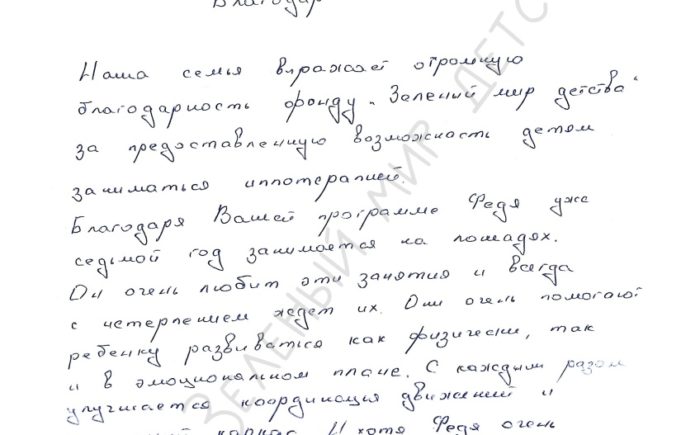 Благодар
Наша семья выражает огромную
благодарность фонду „Зеленый мир детства“
за предоставленную возможность детям
заниматься иппотерапией.
Благодаря Вашей программе Федя уже
седьмой год занимается на лошадях.
Он очень любит эти занятия и всегда
с нетерпением ждет их. Они очень помогают
ребенку развиваться как физически, так
и в эмоциональном плане. С каждым разом
улучшается координация движений и
каркас. И хотя Федя очень
ЗЕЛЕНЫЙ МИР ДЕТС